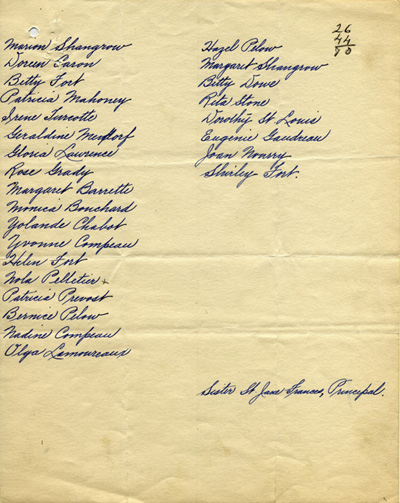 Marion Shangrow
Doreen Caron
Betty Fort
Patricia Mahoney
Irene Turcotte
Geraldine
Gloria Lawrence
Rose Grady
Margaret Barrette
Monica Bouchard
Yolande Chabot
Yvonne Compeau
Helen Fort
Nola Pelletier
Patricia Prevost
Bernice Pelow
Nadine Compeau
Olga Lamoureaux
26
44
80
Hazel Pelow
Margaret Shangrow
Betty Dowe
Rita Stone
Dorothy St Louis
Eugenie Gaudreau
Joan
Shirley Fort.
Sister St Jane Frances, Principal.